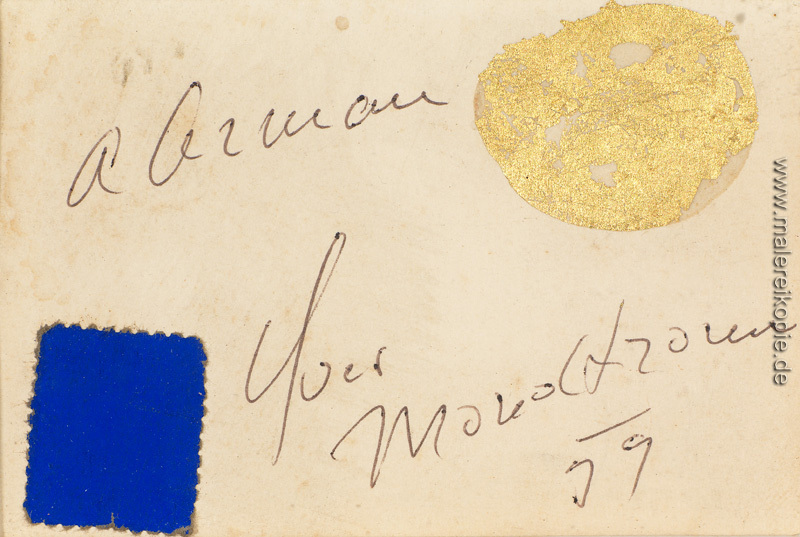 A Arman
Yves
Monochrome
59
www.malereikopie.de